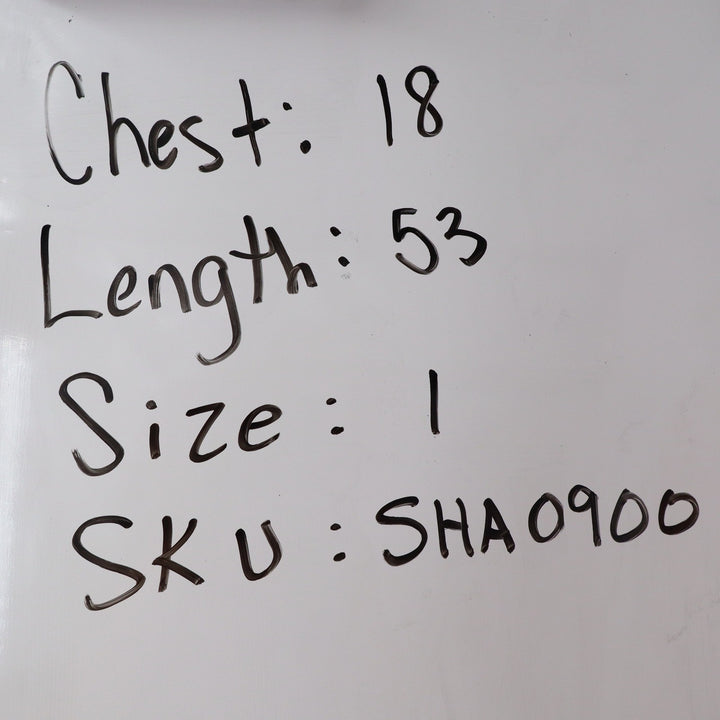 Chest: 18
Length: 53
Size: 1
SKU: SHA0900